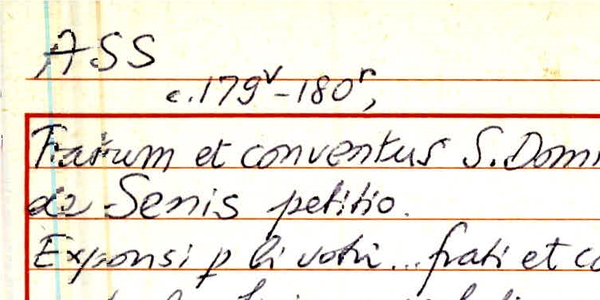 ASS
c. 179v-180r,
Fratrum et conventus S. Domi
de Senis petitio.
Exponsi p li votri... frati et co